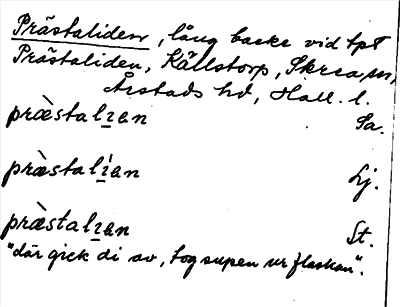 Prästaliden, lång backe vid tpt
Prästaliden, Källstorp, Skrea sn,
Årstads hd, Hall. l.
prὰstalɪen Sa.
prὰstalɪ́en Lj.
prὰstalɪen St.
"där gick di av, tog supen ur flaskan".